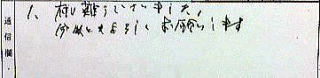 通信欄
1. 有り難うございました。
今後ともよろしくお願いします